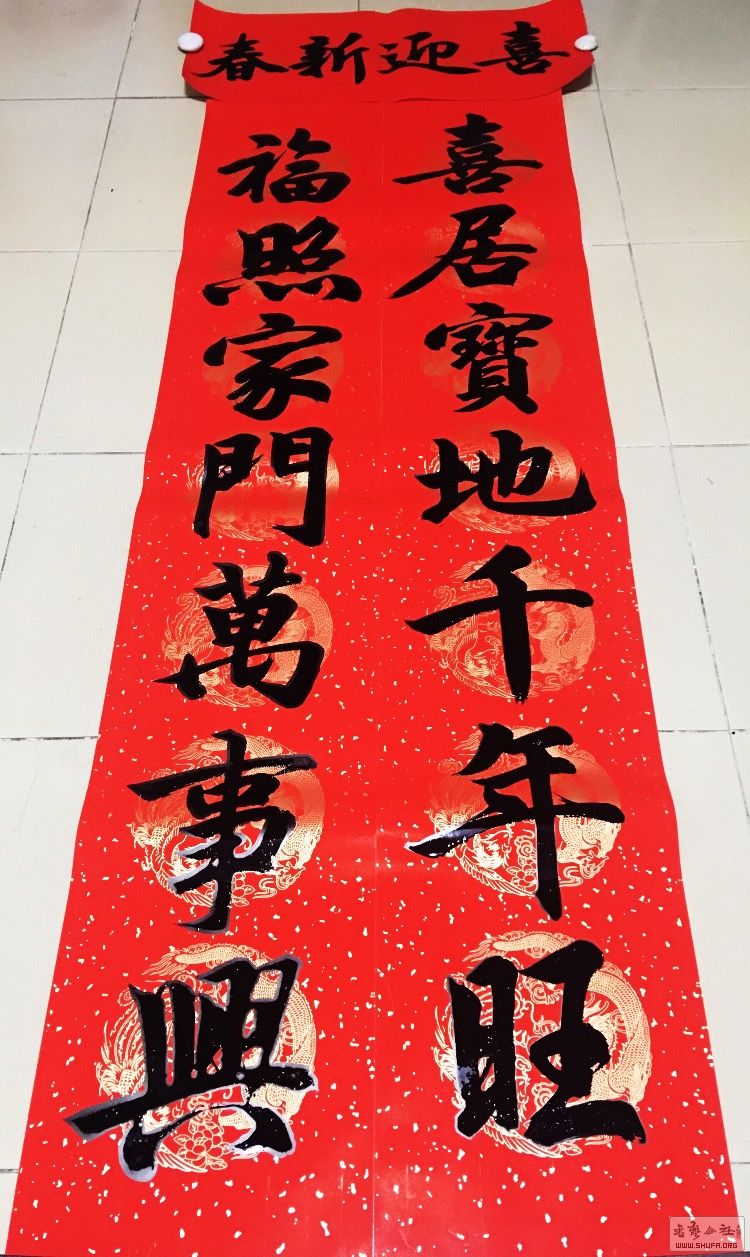 喜迎新春
喜居寶地千年旺
福照家門萬事興
WWW.SHUFA.ORG